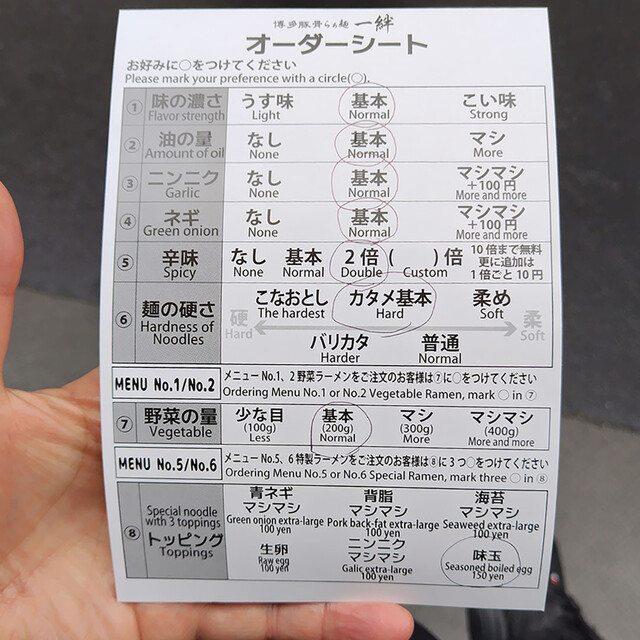 博多豚骨らぁ麺 一絆
オーダーシート
お好みに○をつけてください
Please mark your preference with a circle(○).
① 味の濃さ うす味 基本 こい味
Flavor strength Light Normal Strong
② 油の量 なし 基本 マシ
Amount of oil None Normal More
③ ニンニク なし 基本 マシマシ
+100円
Garlic None Normal More and more
④ ネギ なし 基本 マシマシ
+100円
Green onion None Normal More and more
⑤ 辛味 なし 基本 2倍 ( )倍
Spicy None Normal Double Custom
10倍まで無料
更に追加は
1倍ごと10円
⑥ 麺の硬さ こなおとし カタメ基本 柔め
Hardness of Noodles The hardest Hard Soft
硬 柔
Hard Soft
バリカタ 普通
Harder Normal
MENU No.1/No.2 メニューNo.1、2 野菜ラーメンをご注文のお客様は⑦に○をつけてください
Ordering Menu No.1 or No.2 Vegetable Ramen, mark ○ in ⑦
⑦ 野菜の量 少な目 基本 マシ マシマシ
(100g) (200g) (300g) (400g)
Vegetable Less Normal More More and more
MENU No.5/No.6 メニューNo.5、6 特製ラーメンをご注文のお客様は⑧に3つ○をつけてください
Ordering Menu No.5 or No.6 Special Ramen, mark three ○ in ⑧
⑧ Special noodle with 3 toppings
トッピング
Toppings
青ネギ 背脂 海苔
マシマシ マシマシ マシマシ
Green onion extra-large Pork back-fat extra-large Seaweed extra-large
100 yen 100 yen 100 yen
生卵 ニンニク 味玉
マシマシ
Raw egg Galic extra-large Seasoned boiled egg
100 yen 100 yen 150 yen